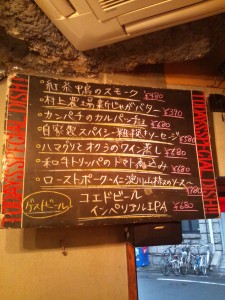 ・紅茶鴨のスモーク ¥480
・村上農場新じゃがバター ¥390
・カンパチのカルパッチョ ¥680
・自家製スパイシー粗挽きソーセージ ¥580
・ハマグリとオクラのワイン蒸し ¥680
・和牛トリッパのトマト煮込み ¥680
・ローストポーク 山椒のソース ¥780
ゲストビール
コエドビール
インペリアルIPA ¥680